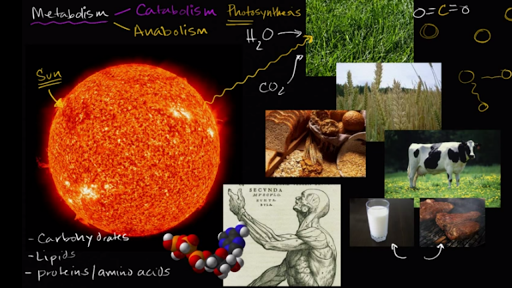 Metabolism
Catabolism
Anabolism
Photosynthesis
H2O
CO2
O=C=O
Sun
SECVNDA
- Carbohydrates
- Lipids
- proteins/amino acids